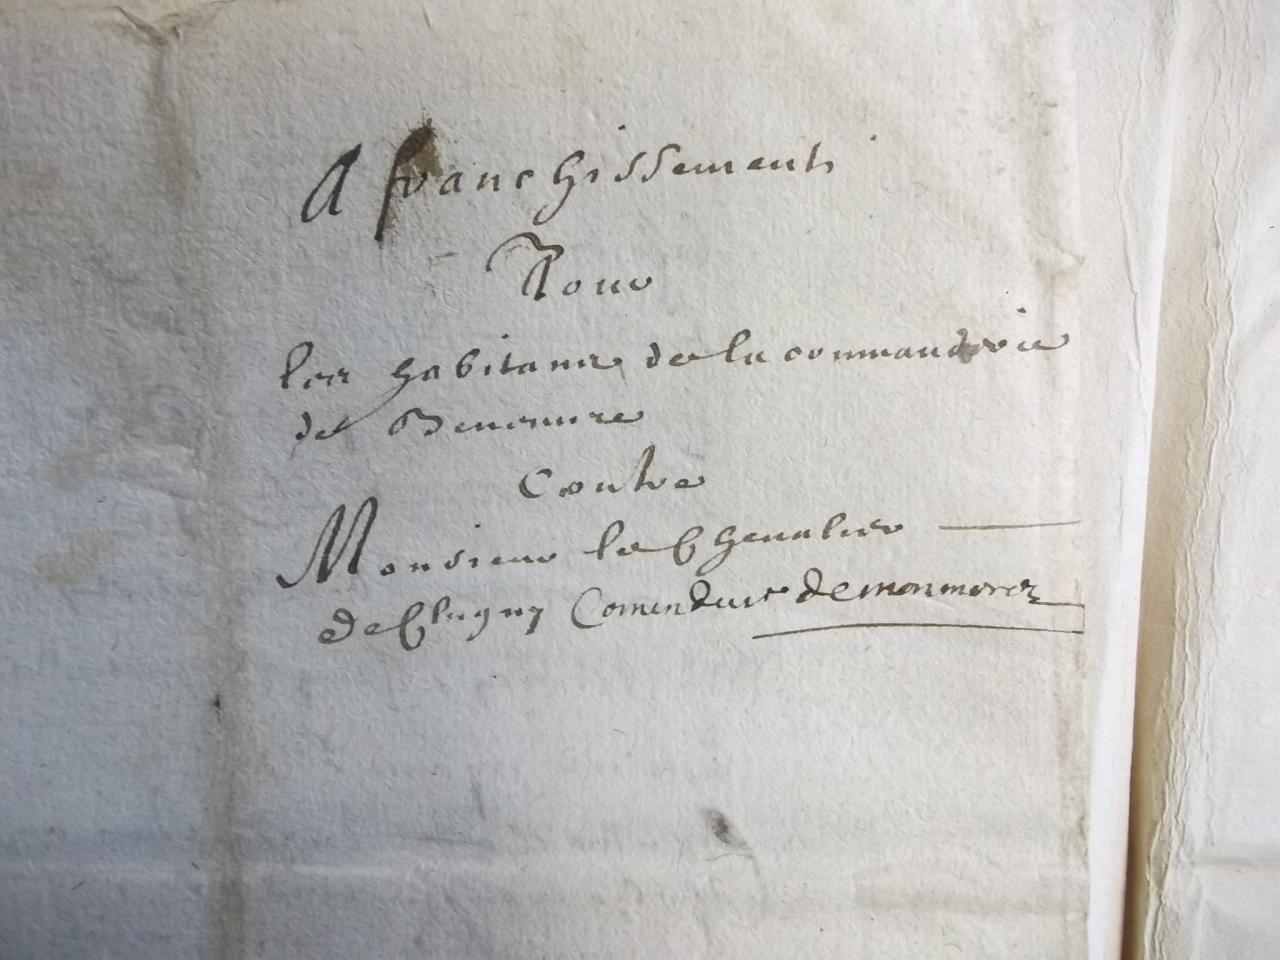 Afranchissement
Pour
les habitans de la commanderie
de Beneuure
Contre
Monsieur le Chevalier
de Clugny Comendeur de monmorot